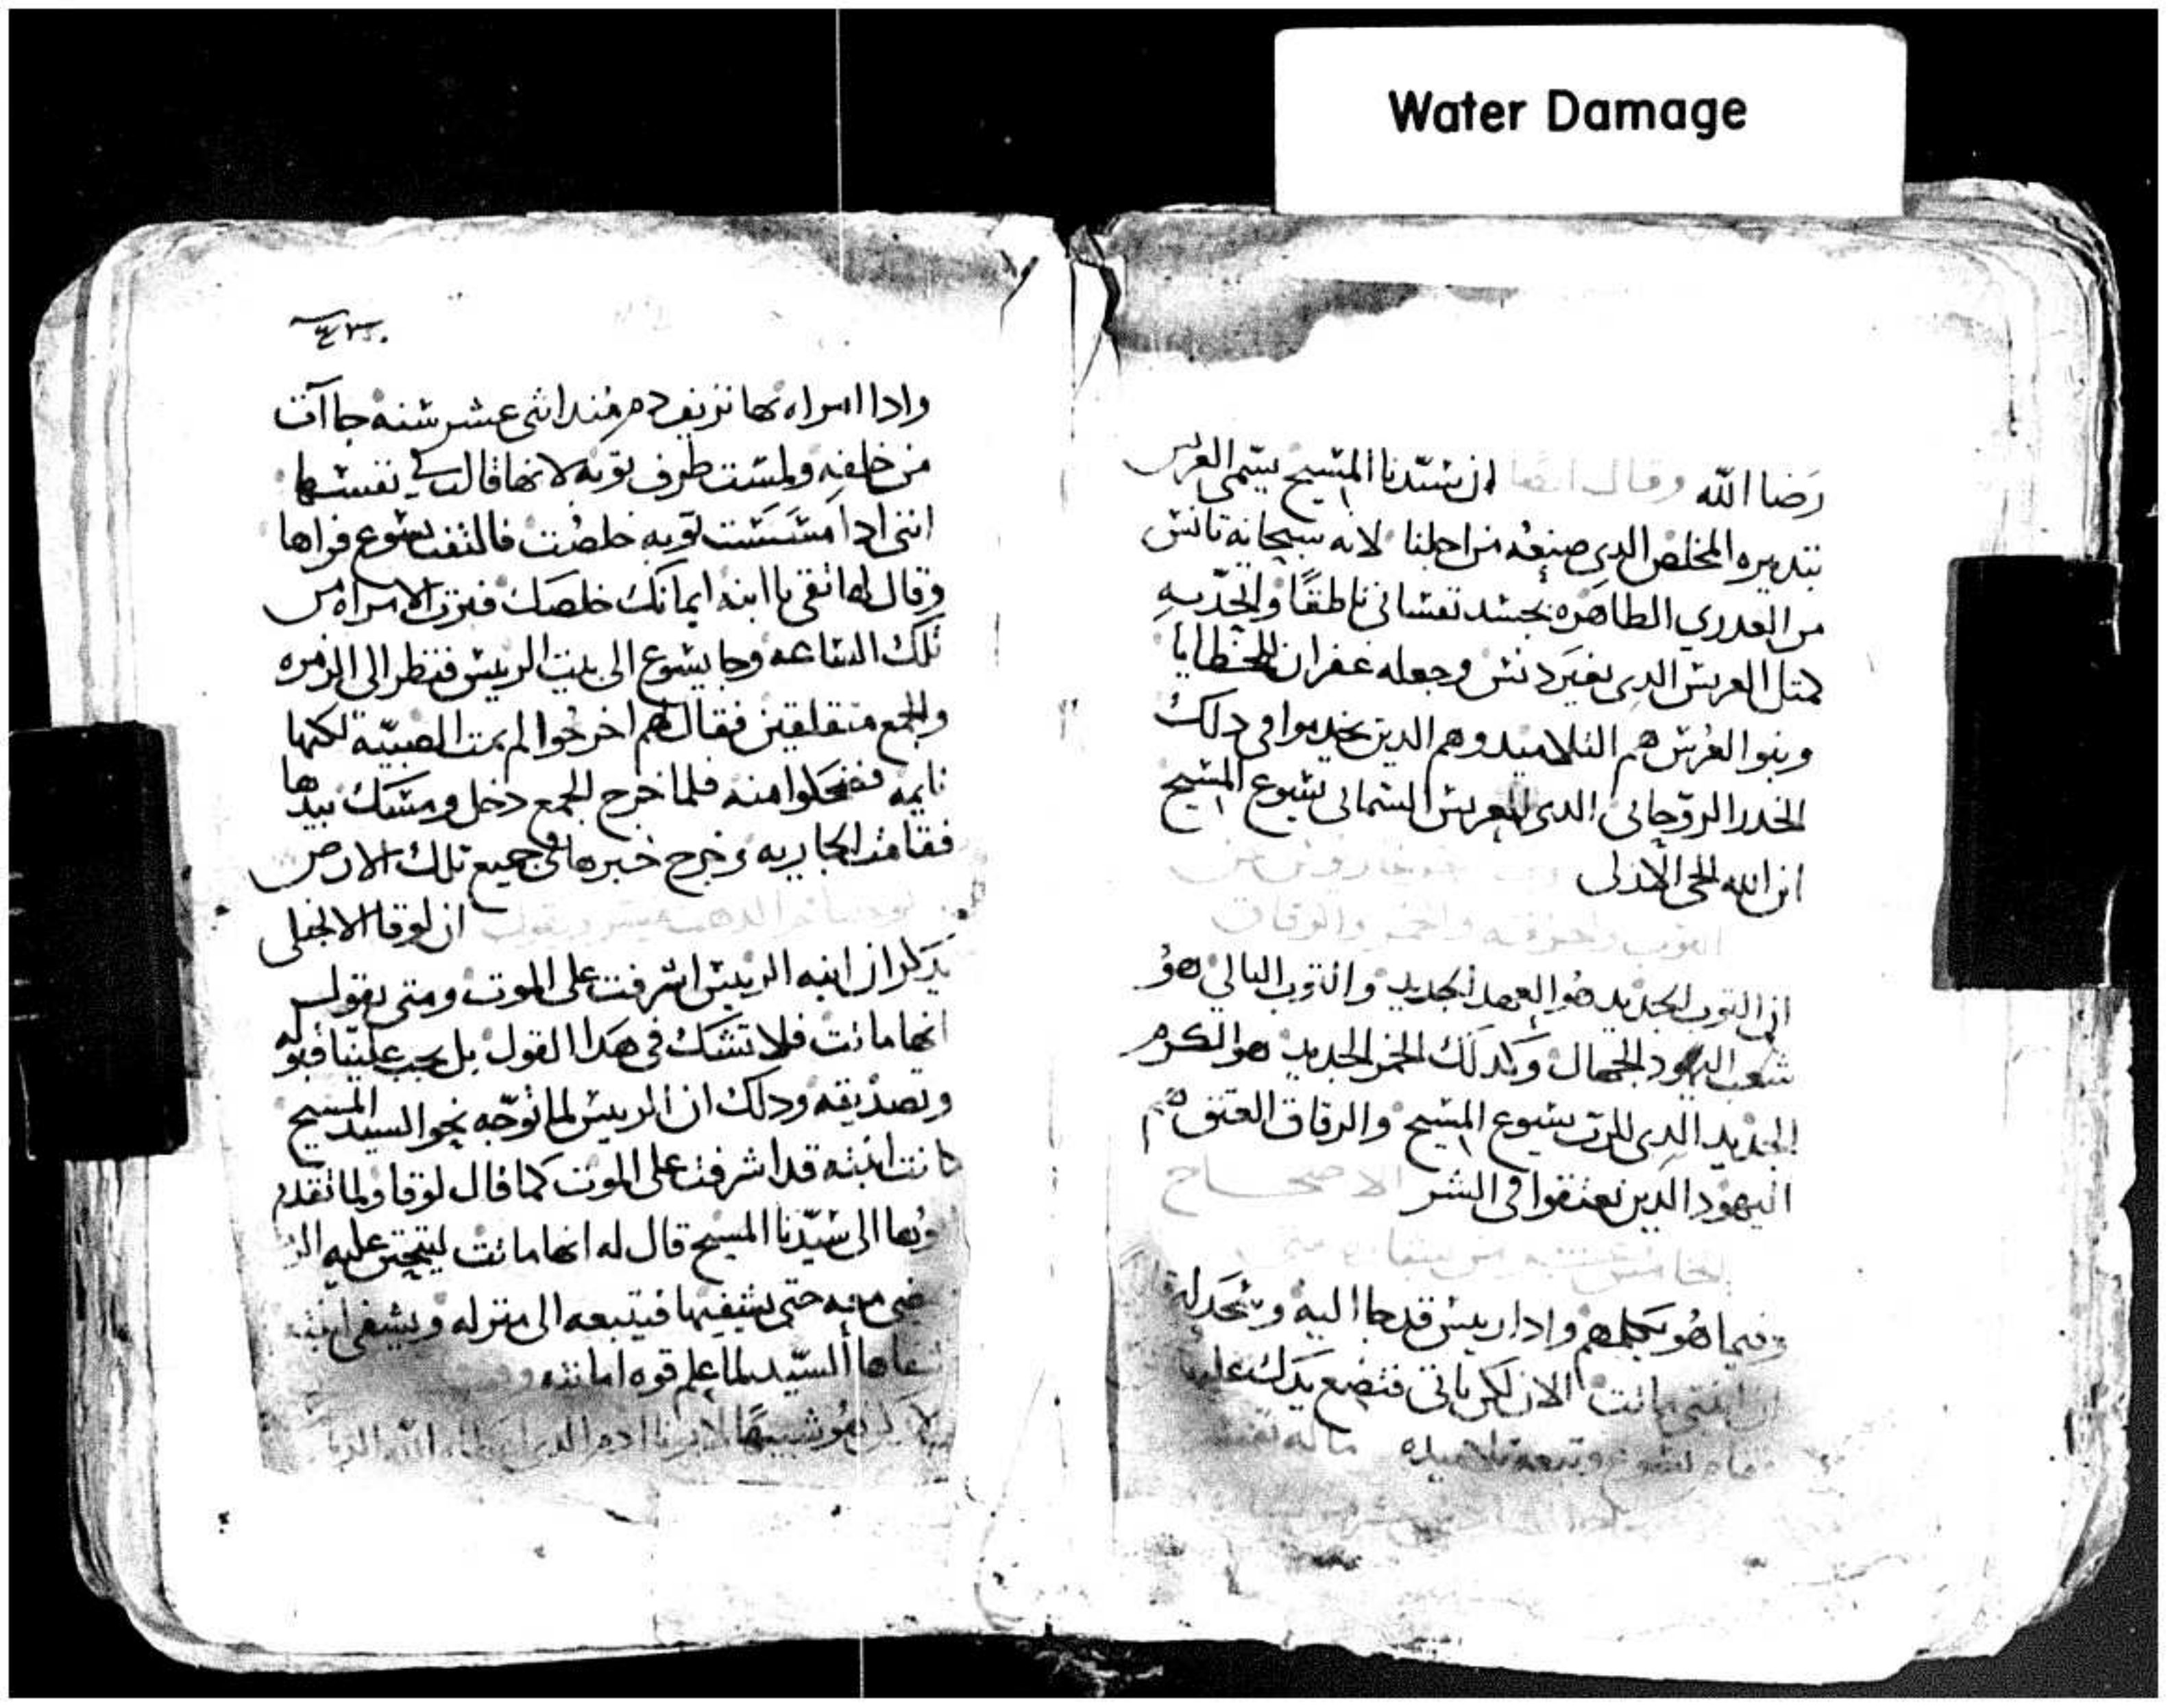 Water Damage
رضا الله وقال ايضا ان سيدنا المسيح يسمى العريس
بتدبيره المخلص الدي صنعه من اجلنا لانه سبحانه تانس
من العدري الطاهره بجسد نفساني ناطقًا واتحد به
كمتل العريس الدي بغير دنس وجعله غفران للخطايا
وبنوا العرس هم التلاميد وهم الدين يخدموا في دلك
الخدر الروحاني الدي للعريس السماني يسوع المسيح
ابن الله الحي الازلي
التوب والخرقه والخمر والزقاق
ان التوب الجديد هو العهد الجديد والتوب البالي هو
شعب اليهود الجهال وكدلك الخمر الجديد هو الكرم
الجديد الدي للرب يسوع المسيح والزقاق العتق هم
اليهود الدين تعتقوا في الشر الاصحاح
الخامس
وفيما هو يكلمهم وادا ريس قد جا اليه وسجد له
ان ابنتي ماتت الان لكن ياتي فتضع يدك عليها
فقام يسوع وتبعه تلاميده
وادا امراه بها نزيف دم مند اتنى عشر سنه جاات
من خلفه ولمست طرف توبه لانها قالت في نفسها
انني ادا مسست توبه خلصت فالتفت يسوع فراها
وقال لها تقي يا ابنه ايمانك خلصك فبرت الامراه من
تلك الساعه وجا يسوع الى بيت الريس فنظر الى الزمره
والجمع متقلقين فقال لهم اخرجوا لم تمت الصبيّه لكنها
نايمه فضحكوا منه فلما خرج الجمع دخل ومسك بيدها
فقامت الجاريه وخرج خبرها في جميع تلك الارض
يوحنا فم الدهب يفسر ويقول ان لوقا الانجيلي
يدكر ان ابنه الريس اشرفت على الموت ومتى يقول
انها ماتت فلا تشك في هدا القول بل يجب علينا قبوله
وتصديقه ودلك ان الريس لما توجّه نحو السيد المسيح
كانت ابنته قد اشرفت على الموت كما قال لوقا ولما تقدم
ودعا الى سيّدنا المسيح قال له انها ماتت ليتحنن عليه
معه حتى يشفيها فيتبعه الى منزله ويشفي ابنته
السيّد لما علم قوه امانته
هو شبيهًا لابونا ادم الدي الله